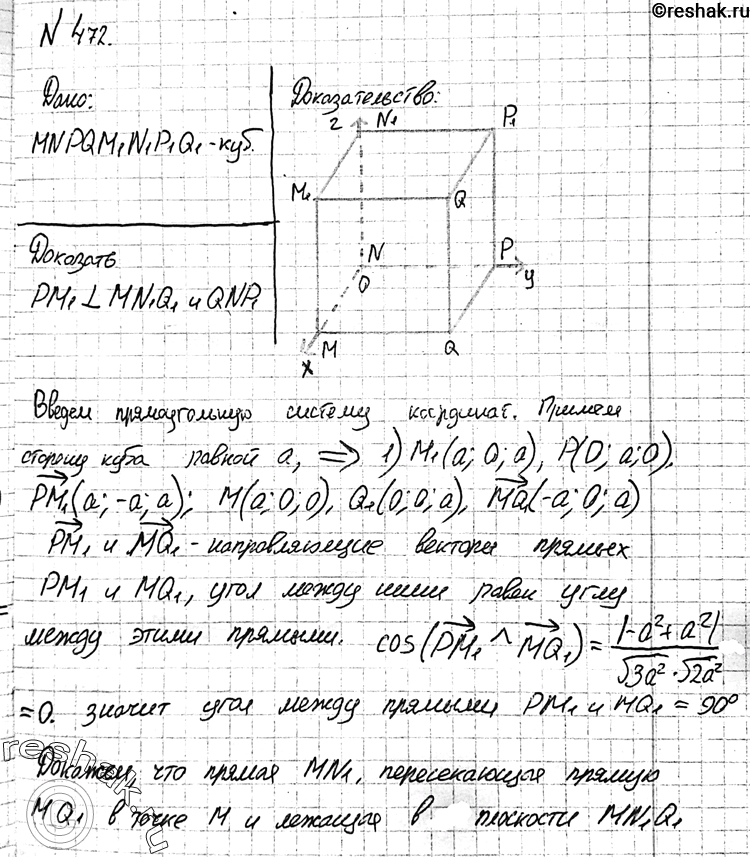 ©reshak.ru
N 472.
Дано:
MNPQM₁N₁P₁Q₁ - куб.
Доказать
PM₁ ⊥ MN₁Q₁ и QNP₁
Доказательство:
z N₁ P₁
M₁ Q
N P
O y
M Q
x
Введем прямоугольную систему координат. Примем
сторону куба равной a, ⟹ 1) M₁(a; 0; a), P(0; a; 0),
PM₁(a; -a; a); M(a; 0; 0), Q₁(0; 0; a), MQ₁(-a; 0; a)
PM₁ и MQ₁ - направляющие векторы прямых
PM₁ и MQ₁, угол между ними равен углу
между этими прямыми. cos(PM₁ ^ MQ₁) = |-a²+a²| / √3a² · √2a²
= 0. значит угол между прямыми PM₁ и MQ₁ = 90°
Докажем, что прямая MN₁, пересекающая прямую
MQ₁ в точке M и лежащая в плоскости MN₁Q₁
reshak.ru